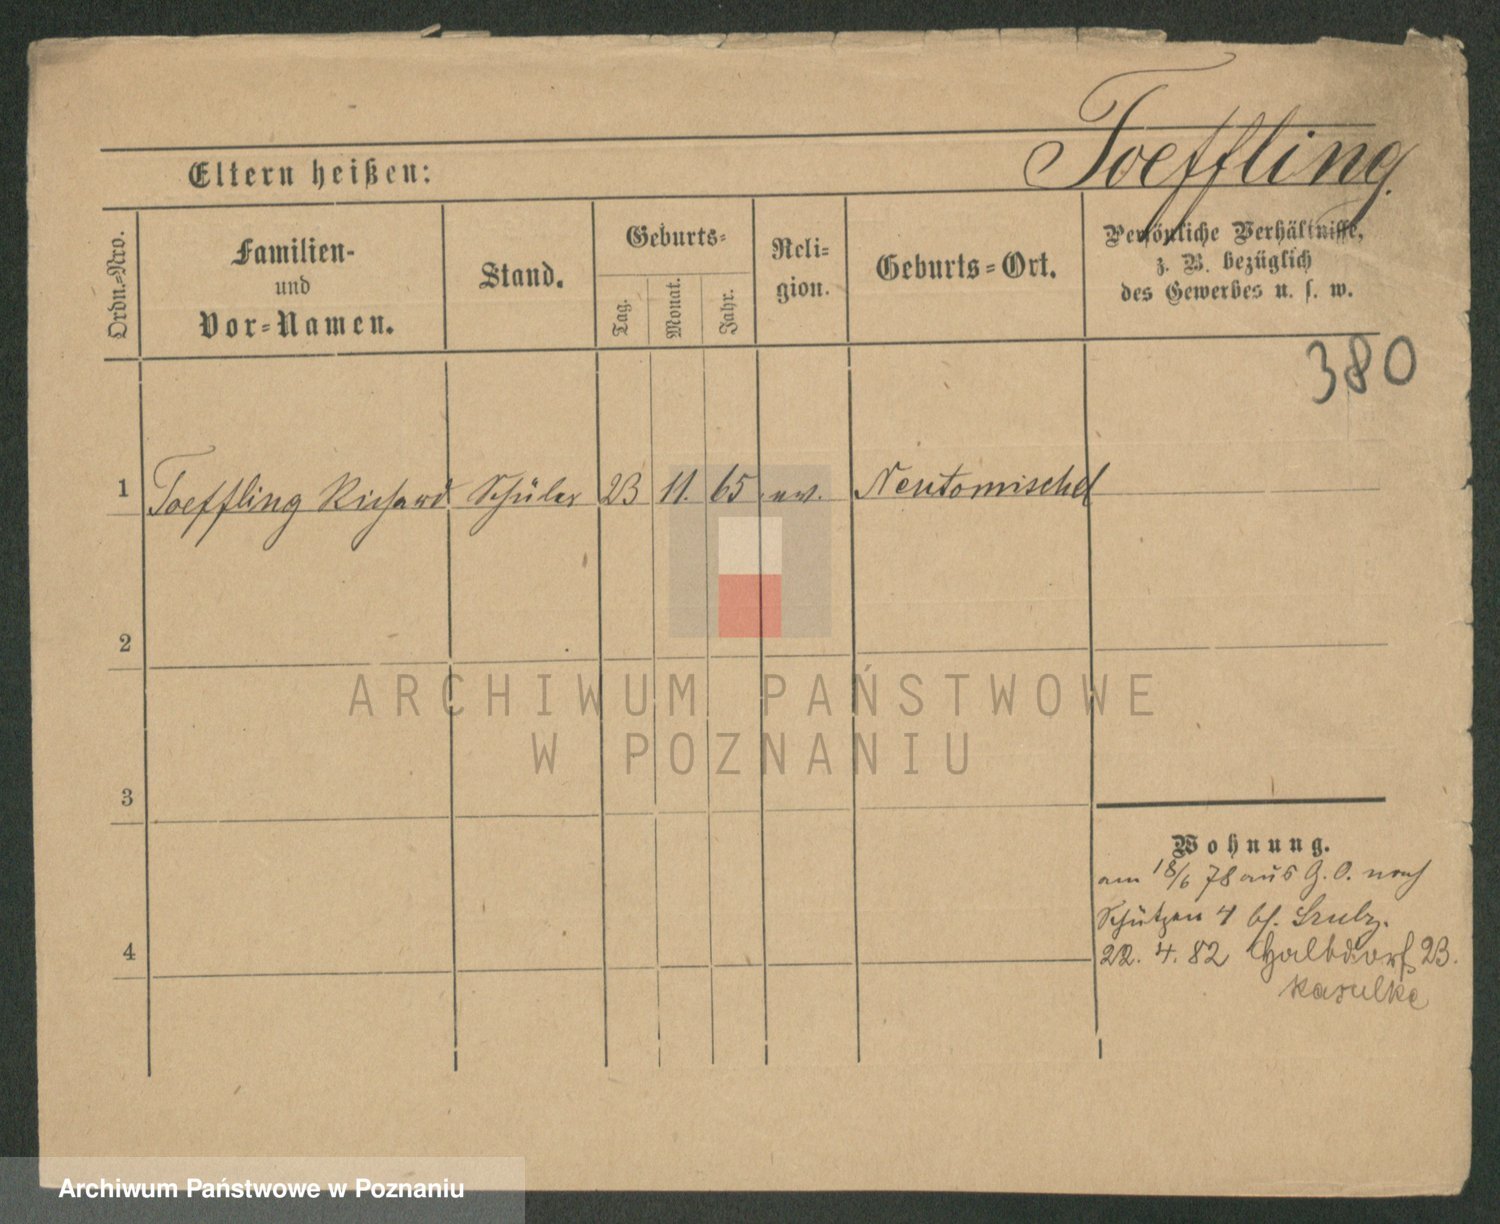 Toeffling
Eltern heißen:
Ordn.-Nro.
Familien-
und
Vor-Namen.
Stand.
Geburts-
Tag.
Monat.
Jahr.
Reli-
gion.
Geburts-Ort.
Persönliche Verhältnisse,
z. B. bezüglich
des Gewerbes u. s. w.
380
1 Toeffling Richard Schüler 23 11. 65 ev. Neutomischel
2
3
4
Wohnung.
am 18/6 78 aus G. O. nach
Schützen 4 bf.
22. 4. 82 Halbdorf 23.
Kasulke
ARCHIWUM PAŃSTWOWE
W POZNANIU
Archiwum Państwowe w Poznaniu